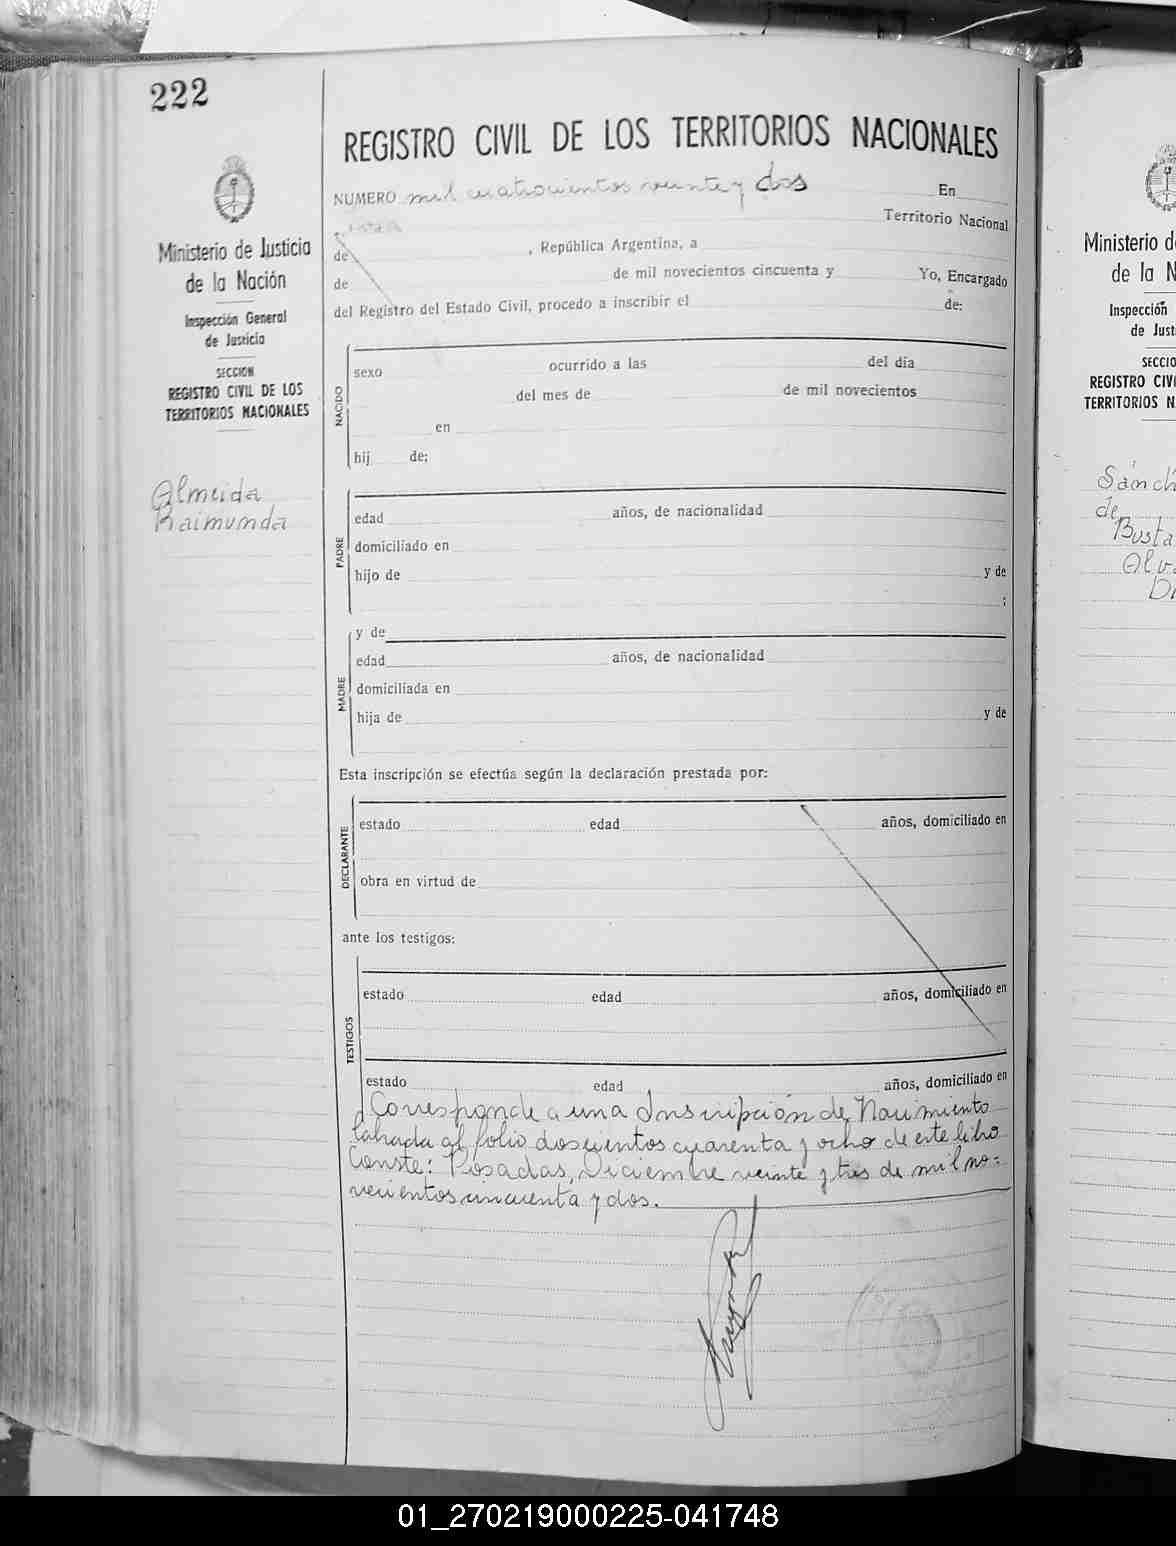 222
REGISTRO CIVIL DE LOS TERRITORIOS NACIONALES
NUMERO mil cuatrocientos veinte y dos En
Territorio Nacional
de , República Argentina, a
de de mil novecientos cincuenta y Yo, Encargado
del Registro del Estado Civil, procedo a inscribir el de:
Ministerio de Justicia
de la Nación
Inspección General
de Justicia
SECCION
REGISTRO CIVIL DE LOS
TERRITORIOS NACIONALES
Almeida
Raimunda
NACIDO
sexo ocurrido a las del día
del mes de de mil novecientos
en
hij de;
PADRE
edad años, de nacionalidad
domiciliado en
hijo de y de
;
MADRE
y de
edad años, de nacionalidad
domiciliada en
hija de y de
Esta inscripción se efectúa según la declaración prestada por:
DECLARANTE
estado edad años, domiciliado en
obra en virtud de
ante los testigos:
TESTIGOS
estado edad años, domiciliado en
estado edad años, domiciliado en
Corresponde a una Inscripción de Nacimiento
labrada al folio doscientos cuarenta y ocho de este libro
Conste: Posadas, Diciembre veinte y tres de mil no-
vecientos cincuenta y dos.
Ministerio d
de la N
Inspección
de Just
SECCIO
REGISTRO CIVI
TERRITORIOS N
Sánch
de
Busta
01_270219000225-041748